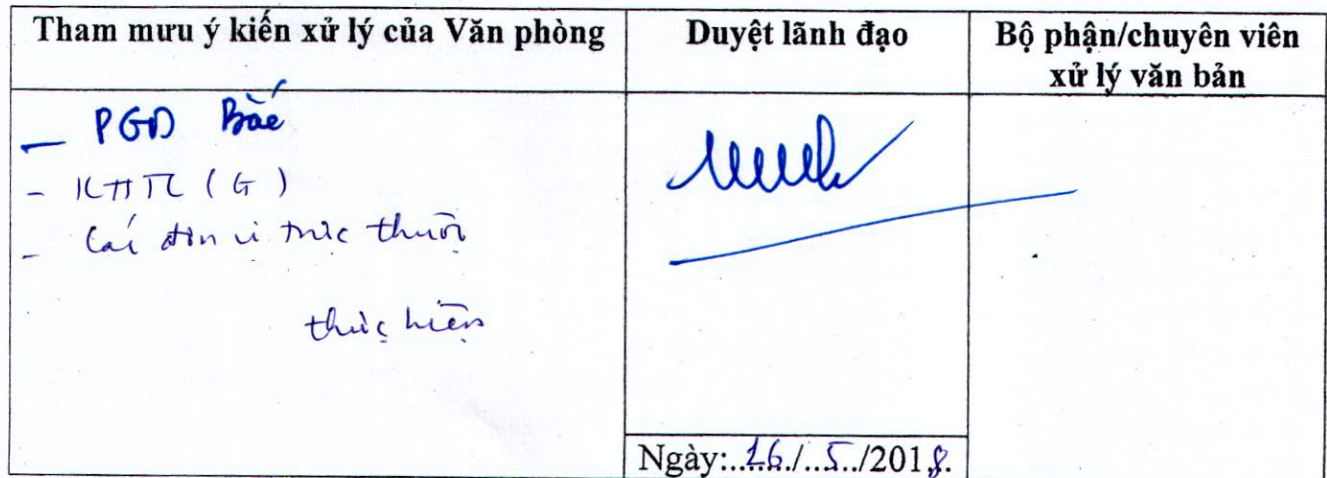 Tham mưu ý kiến xử lý của Văn phòng
Duyệt lãnh đạo
Bộ phận/chuyên viên
xử lý văn bản
- PGĐ Bắc
- KHTC (G)
- Các đơn vị trực thuộc
thực hiện
Ngày:..16./..5../2018.